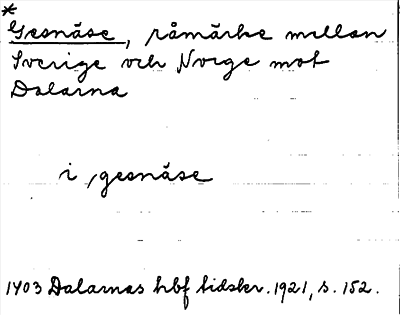 *
Gesnäse, råmärke mellan
Sverige och Norge mot
Dalarna
i, gesnäse
1403 Dalarnas hbf tidskr. 1921, s. 152.